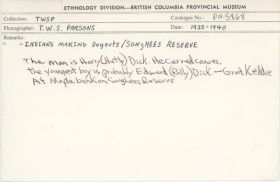 ETHNOLOGY DIVISION—BRITISH COLUMBIA PROVINCIAL MUSEUM
Collection: TWSP Catalogue No.: PN5868
Photographer: T.W.S. PARSONS Date: 1935-1940
Remarks:
- INDIANS MAKING Dugouts/SONGHEES RESERVE
The man is Harry (Hetty) Dick. He carved canoes,
the youngest boy is probably Edward (Billy) Dick — Grant Keddie
At Maplebank on Songhees Reserve